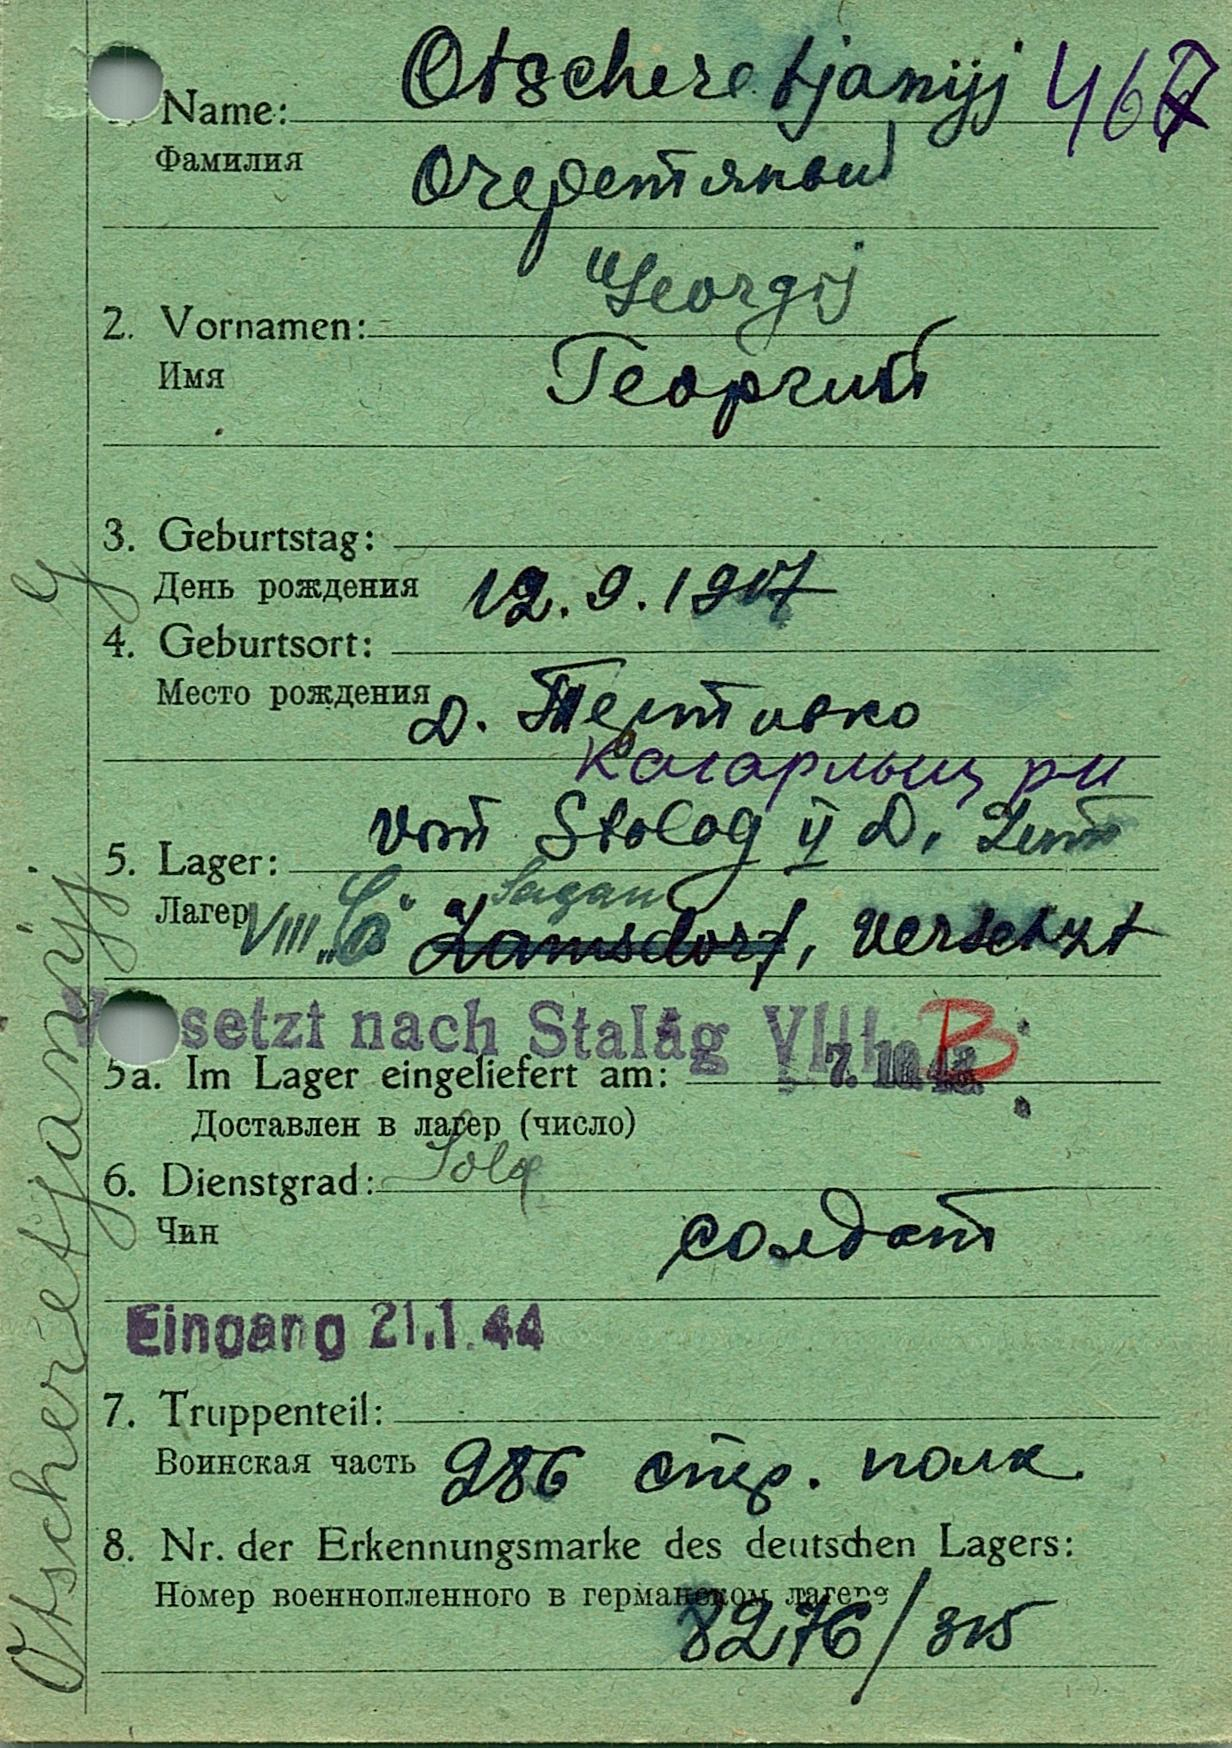 Name: Otscheretjanyj 467
Фамилия Очеретяный
Georgij
2. Vornamen:
Имя Георгий
3. Geburtstag:
День рождения 12.9.1917
4. Geburtsort:
Место рождения д.
Кагарлыц р-н
vom Stalag II D,
5. Lager:
Лагер VIII „C“ Sagan Lamsdorf, versetzt
Versetzt nach Stalag VIII B
5a. Im Lager eingeliefert am: 7. 10. 43
Доставлен в лагер (число)
6. Dienstgrad: Sold
Чин солдат
Eingang 21.1.44
7. Truppenteil:
Воинская часть 286 стр. полк
8. Nr. der Erkennungsmarke des deutschen Lagers:
Номер военнопленного в германском лагере
8276/315
Otscheretjanyj G